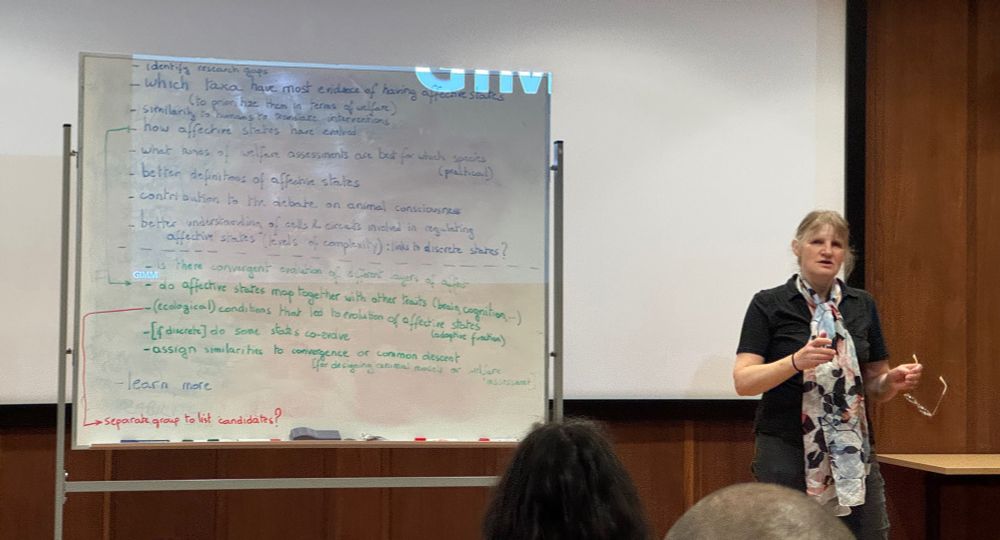 GIMM
- identify research gaps
- which taxa have most evidence of having affective states
(to prioritize them in terms of welfare)
- similarity to humans to translate interventions
- how affective states have evolved
- what kinds of welfare assessments are best for which species
(practical)
- better definitions of affective states
- contribution to the debate on animal consciousness
- better understanding of cells & circuits involved in regulating
affective states (levels of complexity): links to discrete states?
- is there convergent evolution of different layers of affect
GIMM
- do affective states map together with other traits (brain, cognition, ...)
- (ecological) conditions that led to evolution of affective states
(adaptive function)
- [if discrete] do some states co-evolve
- assign similarities to convergence or common descent
(for designing animal models or welfare
assessment)
- learn more
separate group to list candidates?